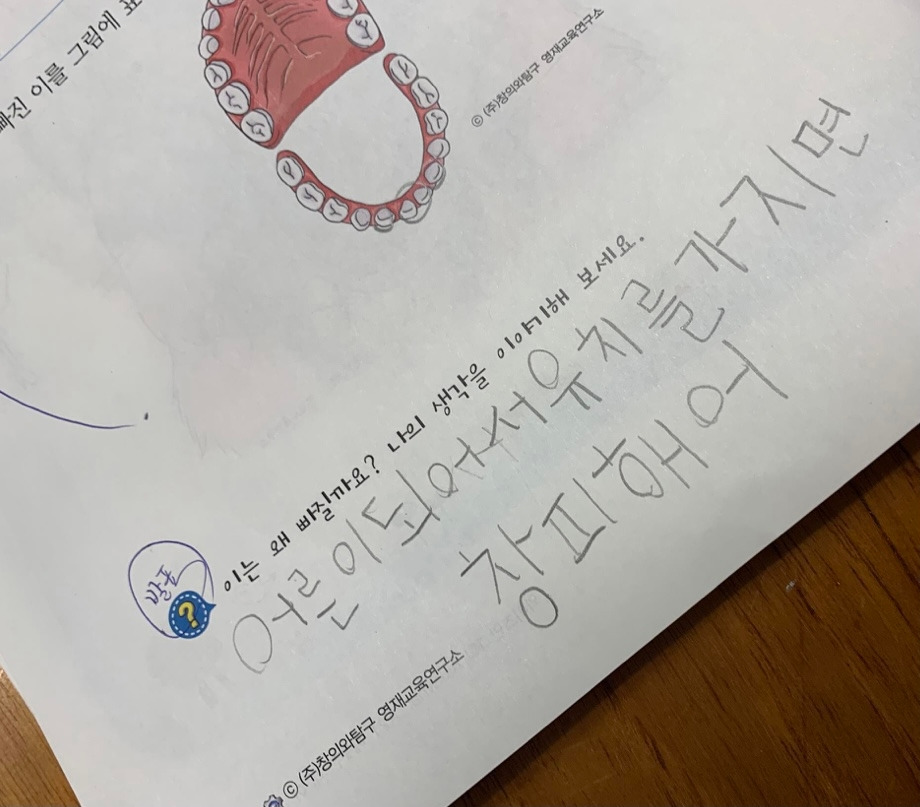 빠진 이를 그림에 표
© (주)창의와탐구 영재교육연구소
발표
?
이는 왜 빠질까요? 나의 생각을 이야기해 보세요.
어른이되어서유치를가지면
창피해어
© (주)창의와탐구 영재교육연구소